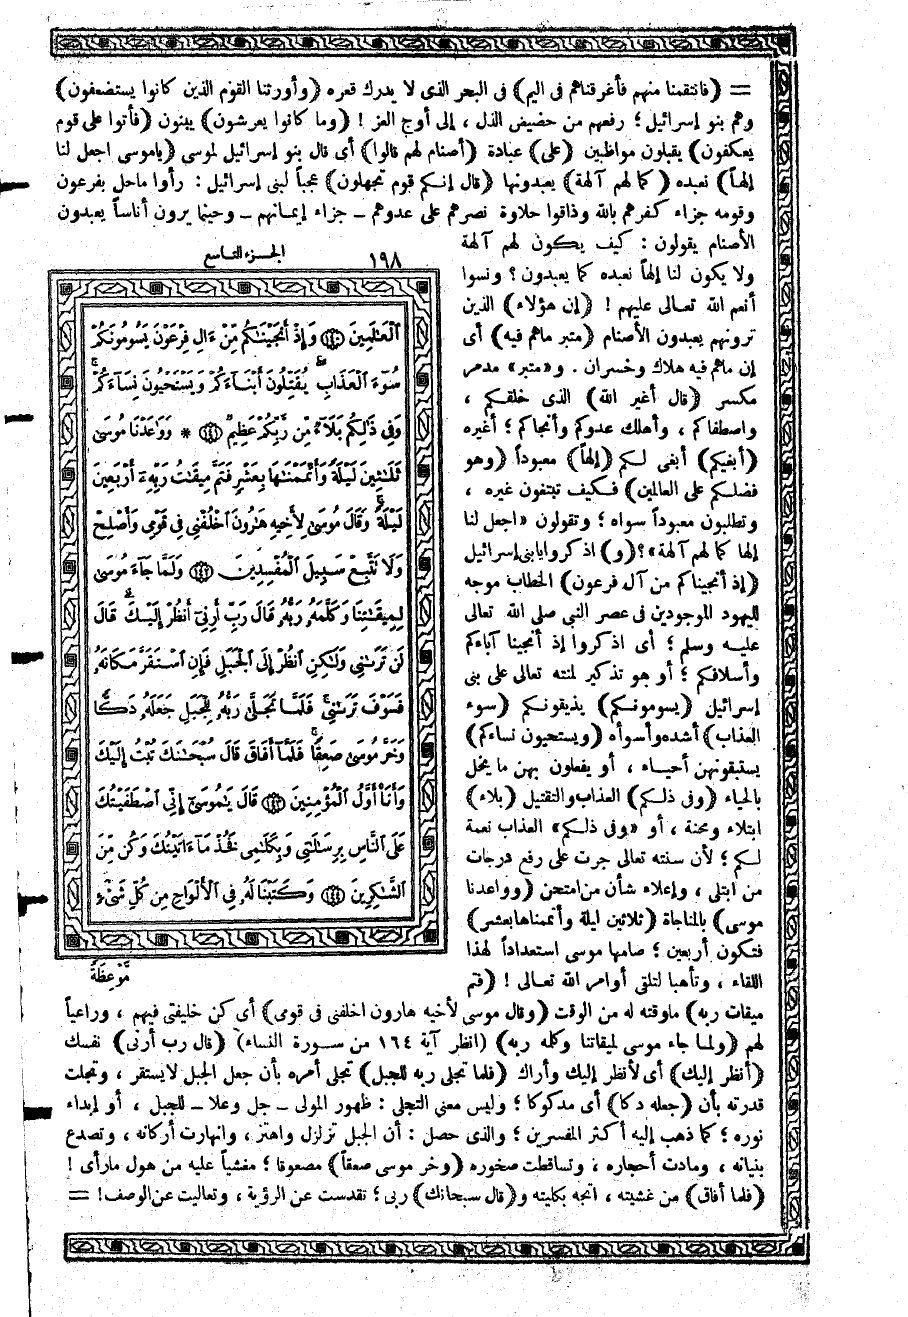 = (فانتقمنا منهم فأغرقناهم فى اليم) فى البحر الذى لا يدرك قعره (وأورثنا القوم الذين كانوا يستضعفون)
وهم بنو إسرائيل؛ رفعهم من حضيض الذل ، إلى أوج العز ! (وما كانوا يعرشون) يبنون (فأتوا على قوم
يعكفون) يقبلون مواظبين (على) عبادة (أصنام لهم قالوا) أى قال بنو إسرائيل لموسى (ياموسى اجعل لنا
إلهاً) نعبده (كما لهم آلهة) يعبدونها (قال إنكم قوم تجهلون) عجباً لبنى إسرائيل : رأوا ماحل بفرعون
وقومه جزاء كفرهم بالله وذاقوا حلاوة نصرهم على عدوهم – جزاء إيمانهم – وحينما يرون أناساً يعبدون
الأصنام يقولون : كيف يكون لهم آلهة
ولا يكون لنا إلهاً نعبده كما يعبدون ؟ ونسوا
أنعم الله تعالى عليهم ! (إن هؤلاء) الذين
ترونهم يعبدون الأصنام (متبر ماهم فيه) أى
إن ماهم فيه هلاك وخسران . و«متبر» مدمر
مكسر (قال أغير الله) الذى خلقكم ،
واصطفاكم ، وأهلك عدوكم وأنجاكم ؛ أغيره
(أبغيكم) أبغى لكم (إلهاً) معبوداً (وهو
فضلكم على العالمين) فكيف تبتغون غيره ،
وتطلبون معبوداً سواه ؛ وتقولون «اجعل لنا
إلها كما لهم آلهة»؟ (و) اذكروا يابنى إسرائيل
(إذ أنجيناكم من آل فرعون) الخطاب موجه
لليهود الموجودين فى عصر النبي صلى الله تعالى
عليه وسلم ؛ أى اذكروا إذ أنجينا آباءكم
وأسلافكم ؛ أو هو تذكير لمنته تعالى على بنى
إسرائيل (يسومونكم) يذيقونكم (سوء
العذاب) أشده وأسوأه (ويستحيون نساءكم)
يستبقونهن أحياء ، أو يفعلون بهن ما يخل
بالحياء (وفى ذلكم) العذاب والتقتيل (بلاء)
ابتلاء ومحنة ، أو «وفى ذلكم» العذاب نعمة
لكم ؛ لأن سنته تعالى جرت على رفع درجات
من ابتلى ، وإعلاء شأن من امتحن (وواعدنا
موسى) بالمناجاة (ثلاثين ليلة وأتممناها بعشر)
فتكون أربعين ؛ صامها موسى استعداداً لهذا
اللقاء ، وتأهبا لتلقى أوامر الله تعالى ! (فتم
ميقات ربه) ماوقته له من الوقت (وقال موسى لأخيه هارون اخلفنى فى قومى) أى كن خليفتى فيهم ، وراعياً
لهم (ولما جاء موسى لميقاتنا وكلمه ربه) (انظر آية ١٦٤ من سورة النساء) (قال رب أرنى) نفسك
(أنظر إليك) أى لأنظر إليك وأراك (فلما تجلى ربه للجبل) تجلى أمره بأن جعل الجبل لايستقر ، وتجلت
قدرته بأن (جعله دكا) أى مدكوكا ؛ وليس معنى التجلى : ظهور المولى – جل وعلا – للجبل ، أو إبداء
نوره ؛ كما ذهب إليه أكثر المفسرين ؛ والذى حصل : أن الجبل تزلزل واهتز ، وانهارت أركانه ، وتصدع
بنيانه ، ومادت أحجاره ، وتساقطت صخوره (وخر موسى صعقاً) مصعوقا ؛ مغشياً عليه من هول مارأى !
(فلما أفاق) من غشيته ، اتجه بكليته و(قال سبحانك) ربى ؛ تقدست عن الرؤية ، وتعاليت عن الوصف! =
١٩٨ الجزء التاسع
ٱلْعَٰلَمِينَ ۝١٤٠ وَإِذْ أَنجَيْنَٰكُم مِّنْ ءَالِ فِرْعَوْنَ يَسُومُونَكُمْ
سُوٓءَ ٱلْعَذَابِ يُقَتِّلُونَ أَبْنَآءَكُمْ وَيَسْتَحْيُونَ نِسَآءَكُمْ
وَفِى ذَٰلِكُم بَلَآءٌ مِّن رَّبِّكُمْ عَظِيمٌ ۝١٤١ * وَوَٰعَدْنَا مُوسَىٰ
ثَلَٰثِينَ لَيْلَةً وَأَتْمَمْنَٰهَا بِعَشْرٍ فَتَمَّ مِيقَٰتُ رَبِّهِۦٓ أَرْبَعِينَ
لَيْلَةً وَقَالَ مُوسَىٰ لِأَخِيهِ هَٰرُونَ ٱخْلُفْنِى فِى قَوْمِى وَأَصْلِحْ
وَلَا تَتَّبِعْ سَبِيلَ ٱلْمُفْسِدِينَ ۝١٤٢ وَلَمَّا جَآءَ مُوسَىٰ
لِمِيقَٰتِنَا وَكَلَّمَهُۥ رَبُّهُۥ قَالَ رَبِّ أَرِنِىٓ أَنظُرْ إِلَيْكَ قَالَ
لَن تَرَىٰنِى وَلَٰكِنِ ٱنظُرْ إِلَى ٱلْجَبَلِ فَإِنِ ٱسْتَقَرَّ مَكَانَهُۥ
فَسَوْفَ تَرَىٰنِى فَلَمَّا تَجَلَّىٰ رَبُّهُۥ لِلْجَبَلِ جَعَلَهُۥ دَكًّا
وَخَرَّ مُوسَىٰ صَعِقًا فَلَمَّآ أَفَاقَ قَالَ سُبْحَٰنَكَ تُبْتُ إِلَيْكَ
وَأَنَا۠ أَوَّلُ ٱلْمُؤْمِنِينَ ۝١٤٣ قَالَ يَٰمُوسَىٰٓ إِنِّى ٱصْطَفَيْتُكَ
عَلَى ٱلنَّاسِ بِرِسَٰلَٰتِى وَبِكَلَٰمِى فَخُذْ مَآ ءَاتَيْتُكَ وَكُن مِّنَ
ٱلشَّٰكِرِينَ ۝١٤٤ وَكَتَبْنَا لَهُۥ فِى ٱلْأَلْوَاحِ مِن كُلِّ شَىْءٍ
مَّوْعِظَةً